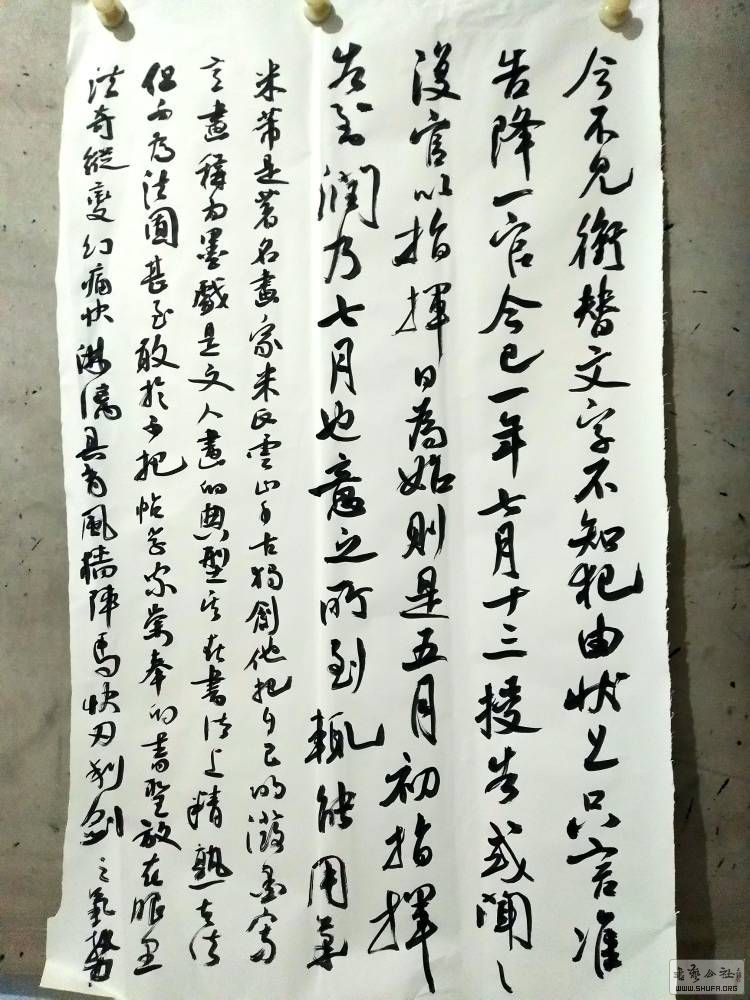 今不見衝替文字不知犯由狀上只言准
告降一官今已一年七月十三授告或聞
沒官以指揮日為始則是五月初指揮
告到潤乃七月也意之所到輒能用筆
米芾是著名畫家米氏雲山千古獨創他把自己的潑墨寫
意畫稱為墨戲是文人畫的典型其在書法上精熟古法
但不為法囿甚至敢於把帖學家崇奉的書聖放在眼里
法奇縱變幻痛快淋漓具有風檣陣馬快刃利劍之氣勢
書法公社
WWW.SHUFA.ORG